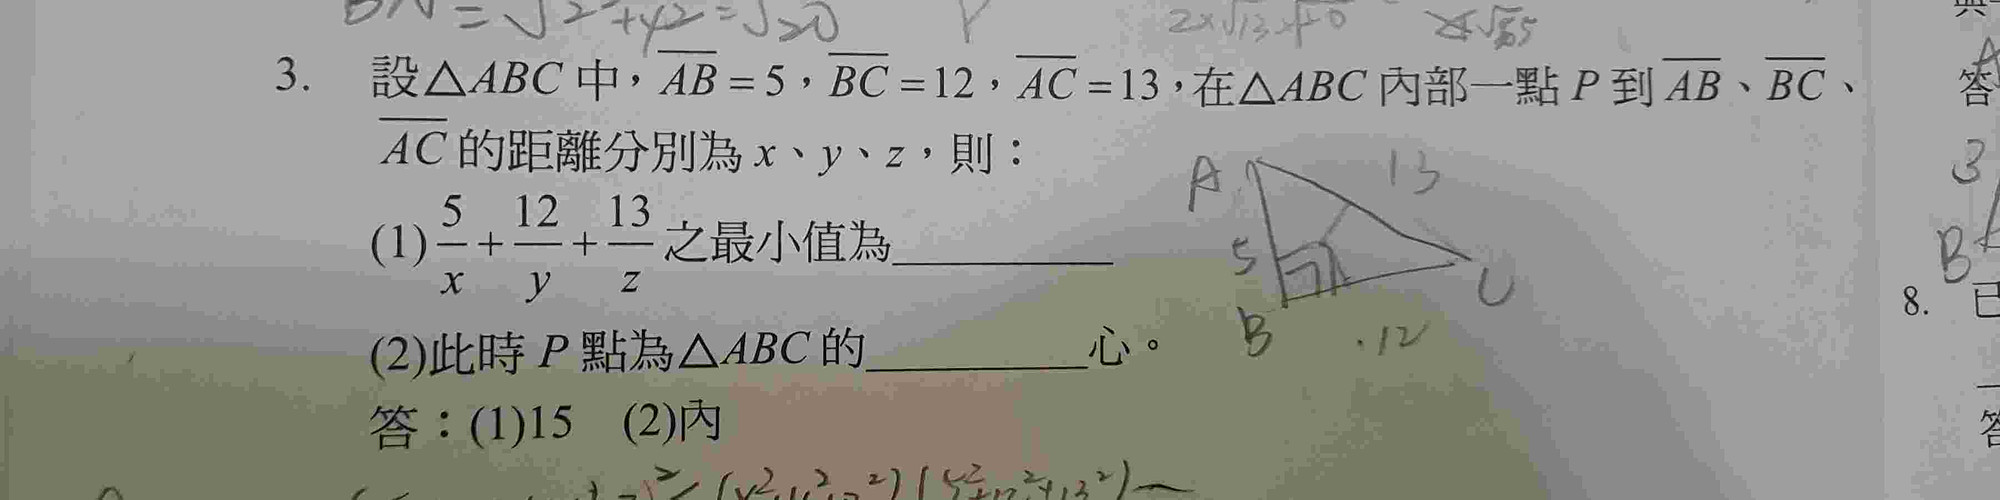 BN = √2²+4² = √20
3. 設△ABC中，AB=5，BC=12，AC=13，在△ABC內部一點P到AB、BC、
AC的距離分別為x、y、z，則：
(1) 5/x + 12/y + 13/z 之最小值為__________
(2)此時P點為△ABC的__________心。
答：(1)15 (2)內
A 13
5
B 12 C
答
3
B
8. 已
答